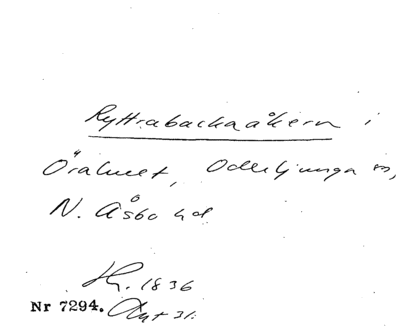 Ryttrabackaåkern i
Öraholmet, Oderljunga sn,
N. Åsbo hd
Hs. 1836
Nr 7294. Akt 31.